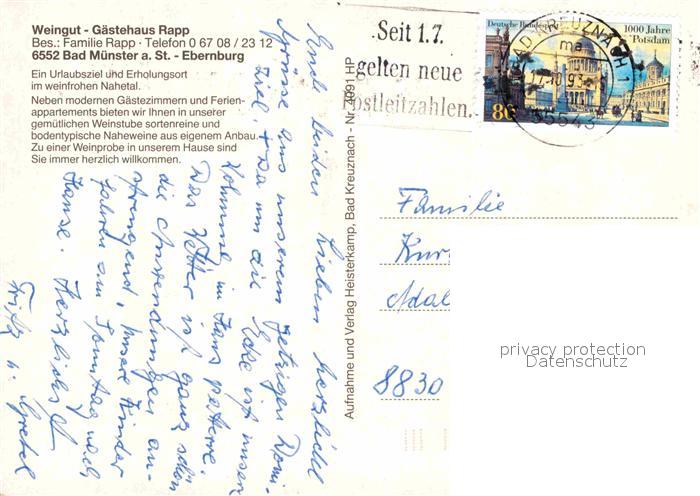 Weingut - Gästehaus Rapp
Bes.: Familie Rapp · Telefon 0 67 08 / 23 12
6552 Bad Münster a. St. - Ebernburg
Ein Urlaubsziel und Erholungsort
im weinfrohen Nahetal.
Neben modernen Gästezimmern und Ferien-
appartements bieten wir Ihnen in unserer
gemütlichen Weinstube sortenreine und
bodentypische Naheweine aus eigenem Anbau.
Zu einer Weinprobe in unserem Hause sind
Sie immer herzlich willkommen.
Euch beiden Lieben herzliche
Grüsse aus unserem jetzigen
Ziel, um die Ecke ist unser
im Haus
Das Wetter ist ganz schön
die Anwendungen an-
strengend, unsere Kinder
fahren am Sonntag nach
Hause. Herzlichst
Fritz u. Gretel
Aufnahme und Verlag Heisterkamp, Bad Kreuznach - Nr. 7091 HP
Seit 1.7.
gelten neue
Postleitzahlen.
Deutsche Bundespost
1000 Jahre
Potsdam
80
BAD KREUZNACH 1
ma
10.93
55543
Familie
Kur
Adal
8830
privacy protection
Datenschutz